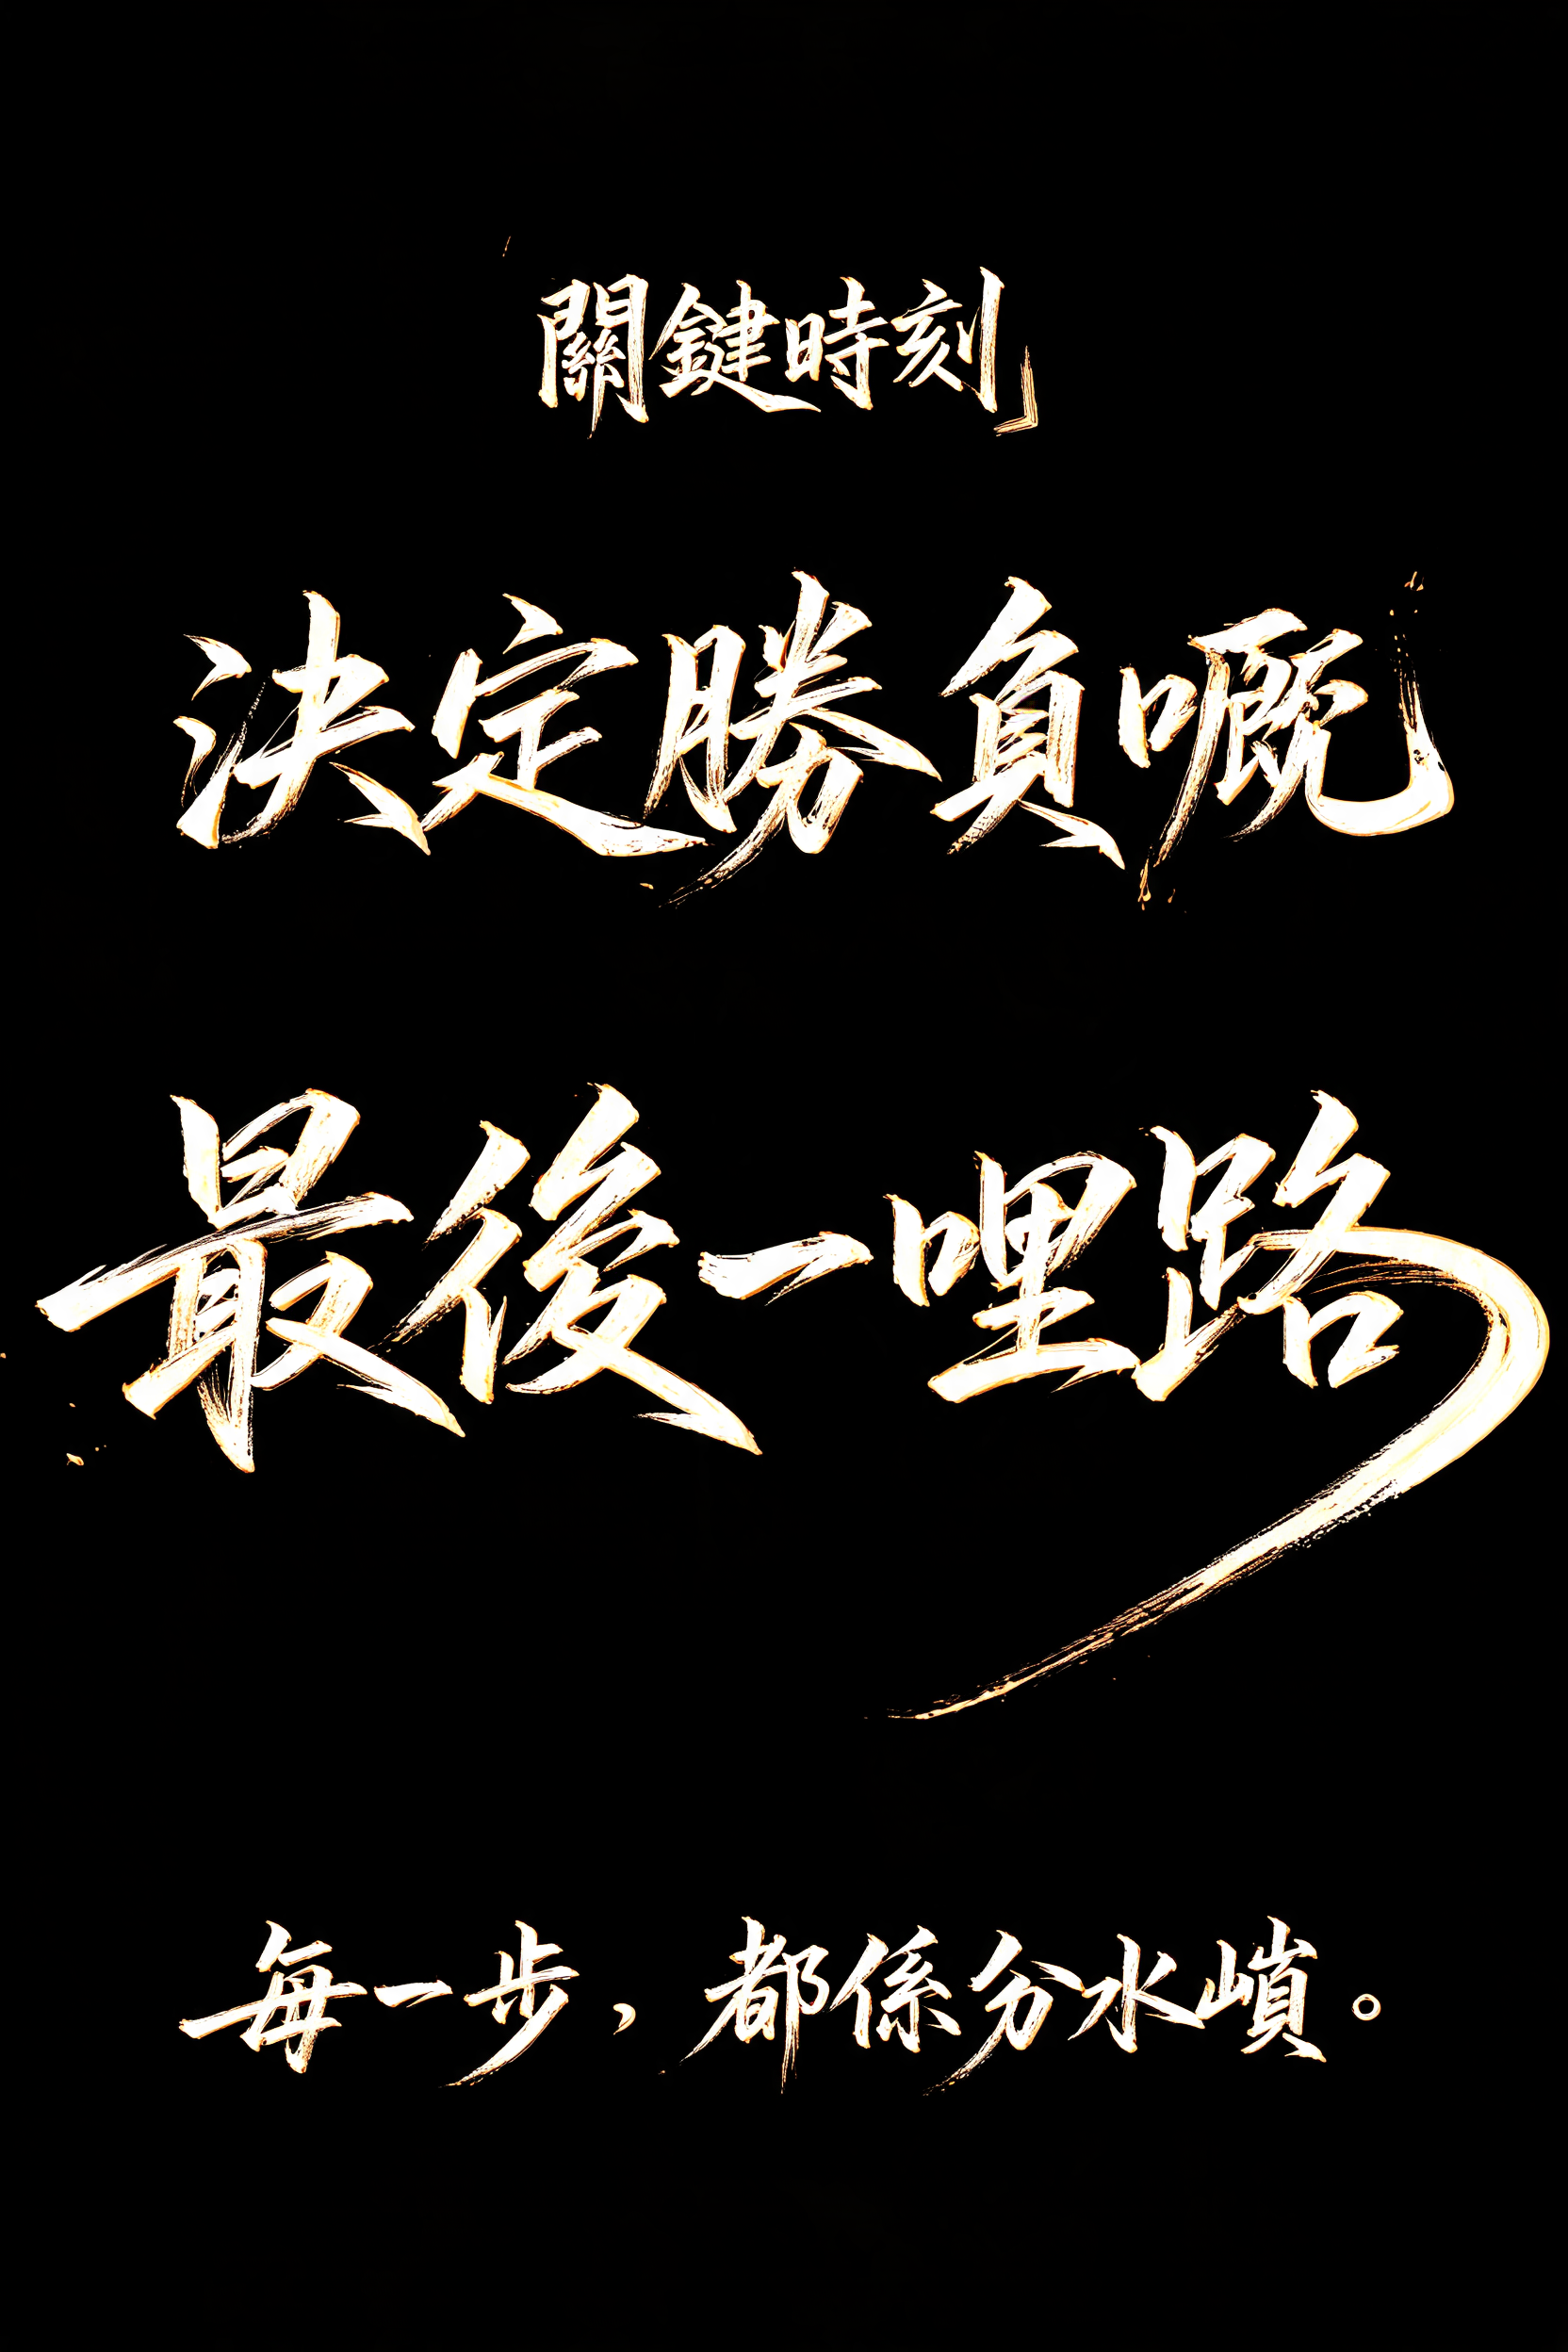 關鍵時刻」
決定勝負嘅
最後一哩路
每一步，都係分水。